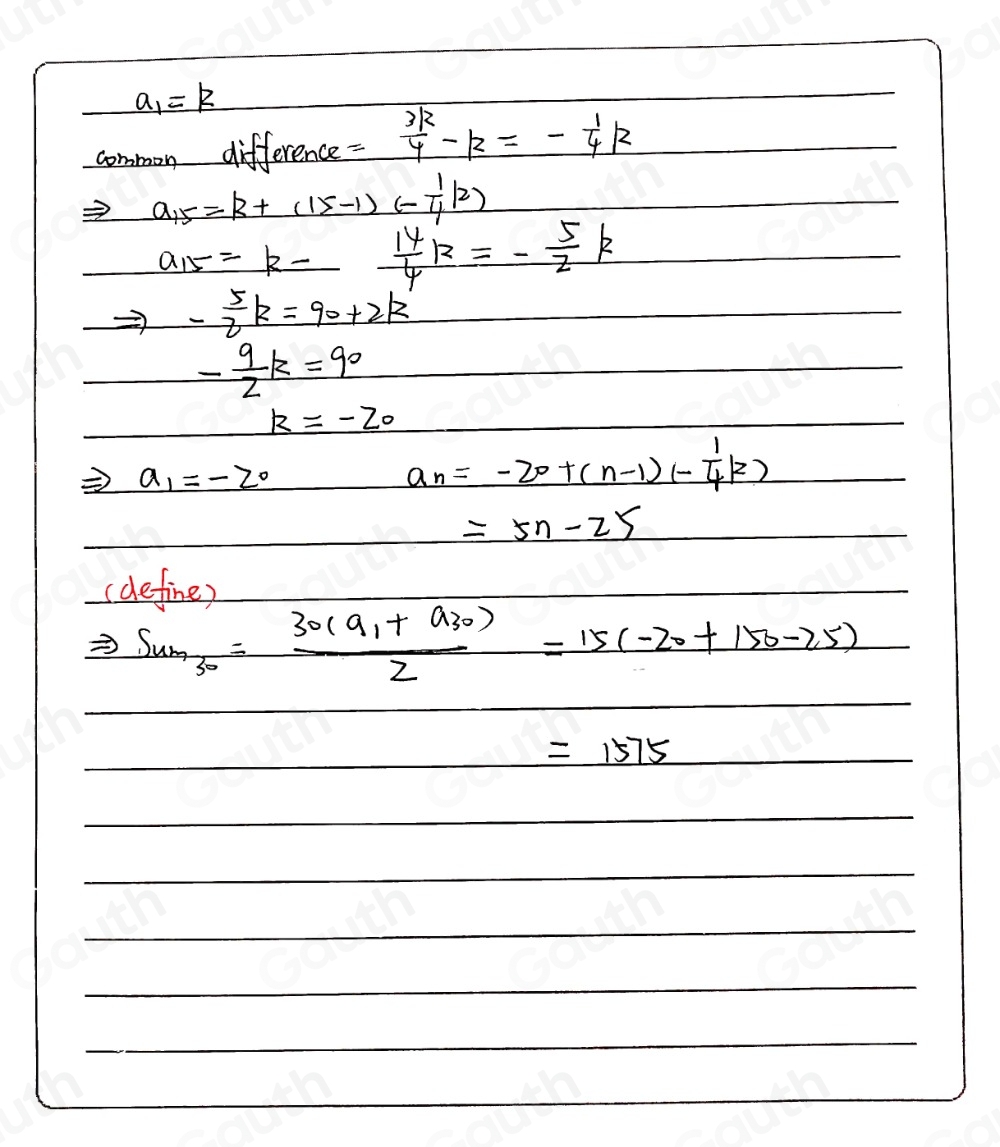 a₁ = k
common difference = 3k/4 - k = - 1/4 k
⇒ a₁₅ = k + (15-1) (- 1/4 k)
a₁₅ = k - 14/4 k = - 5/2 k
⇒ - 5/2 k = 90 + 2k
- 9/2 k = 90
k = -20
⇒ a₁ = -20 an = -20 + (n-1) (- 1/4 k)
= 5n - 25
(define)
⇒ Sum₃₀ = 30(a₁ + a₃₀)/2 = 15(-20 + 150 - 25)
= 1575